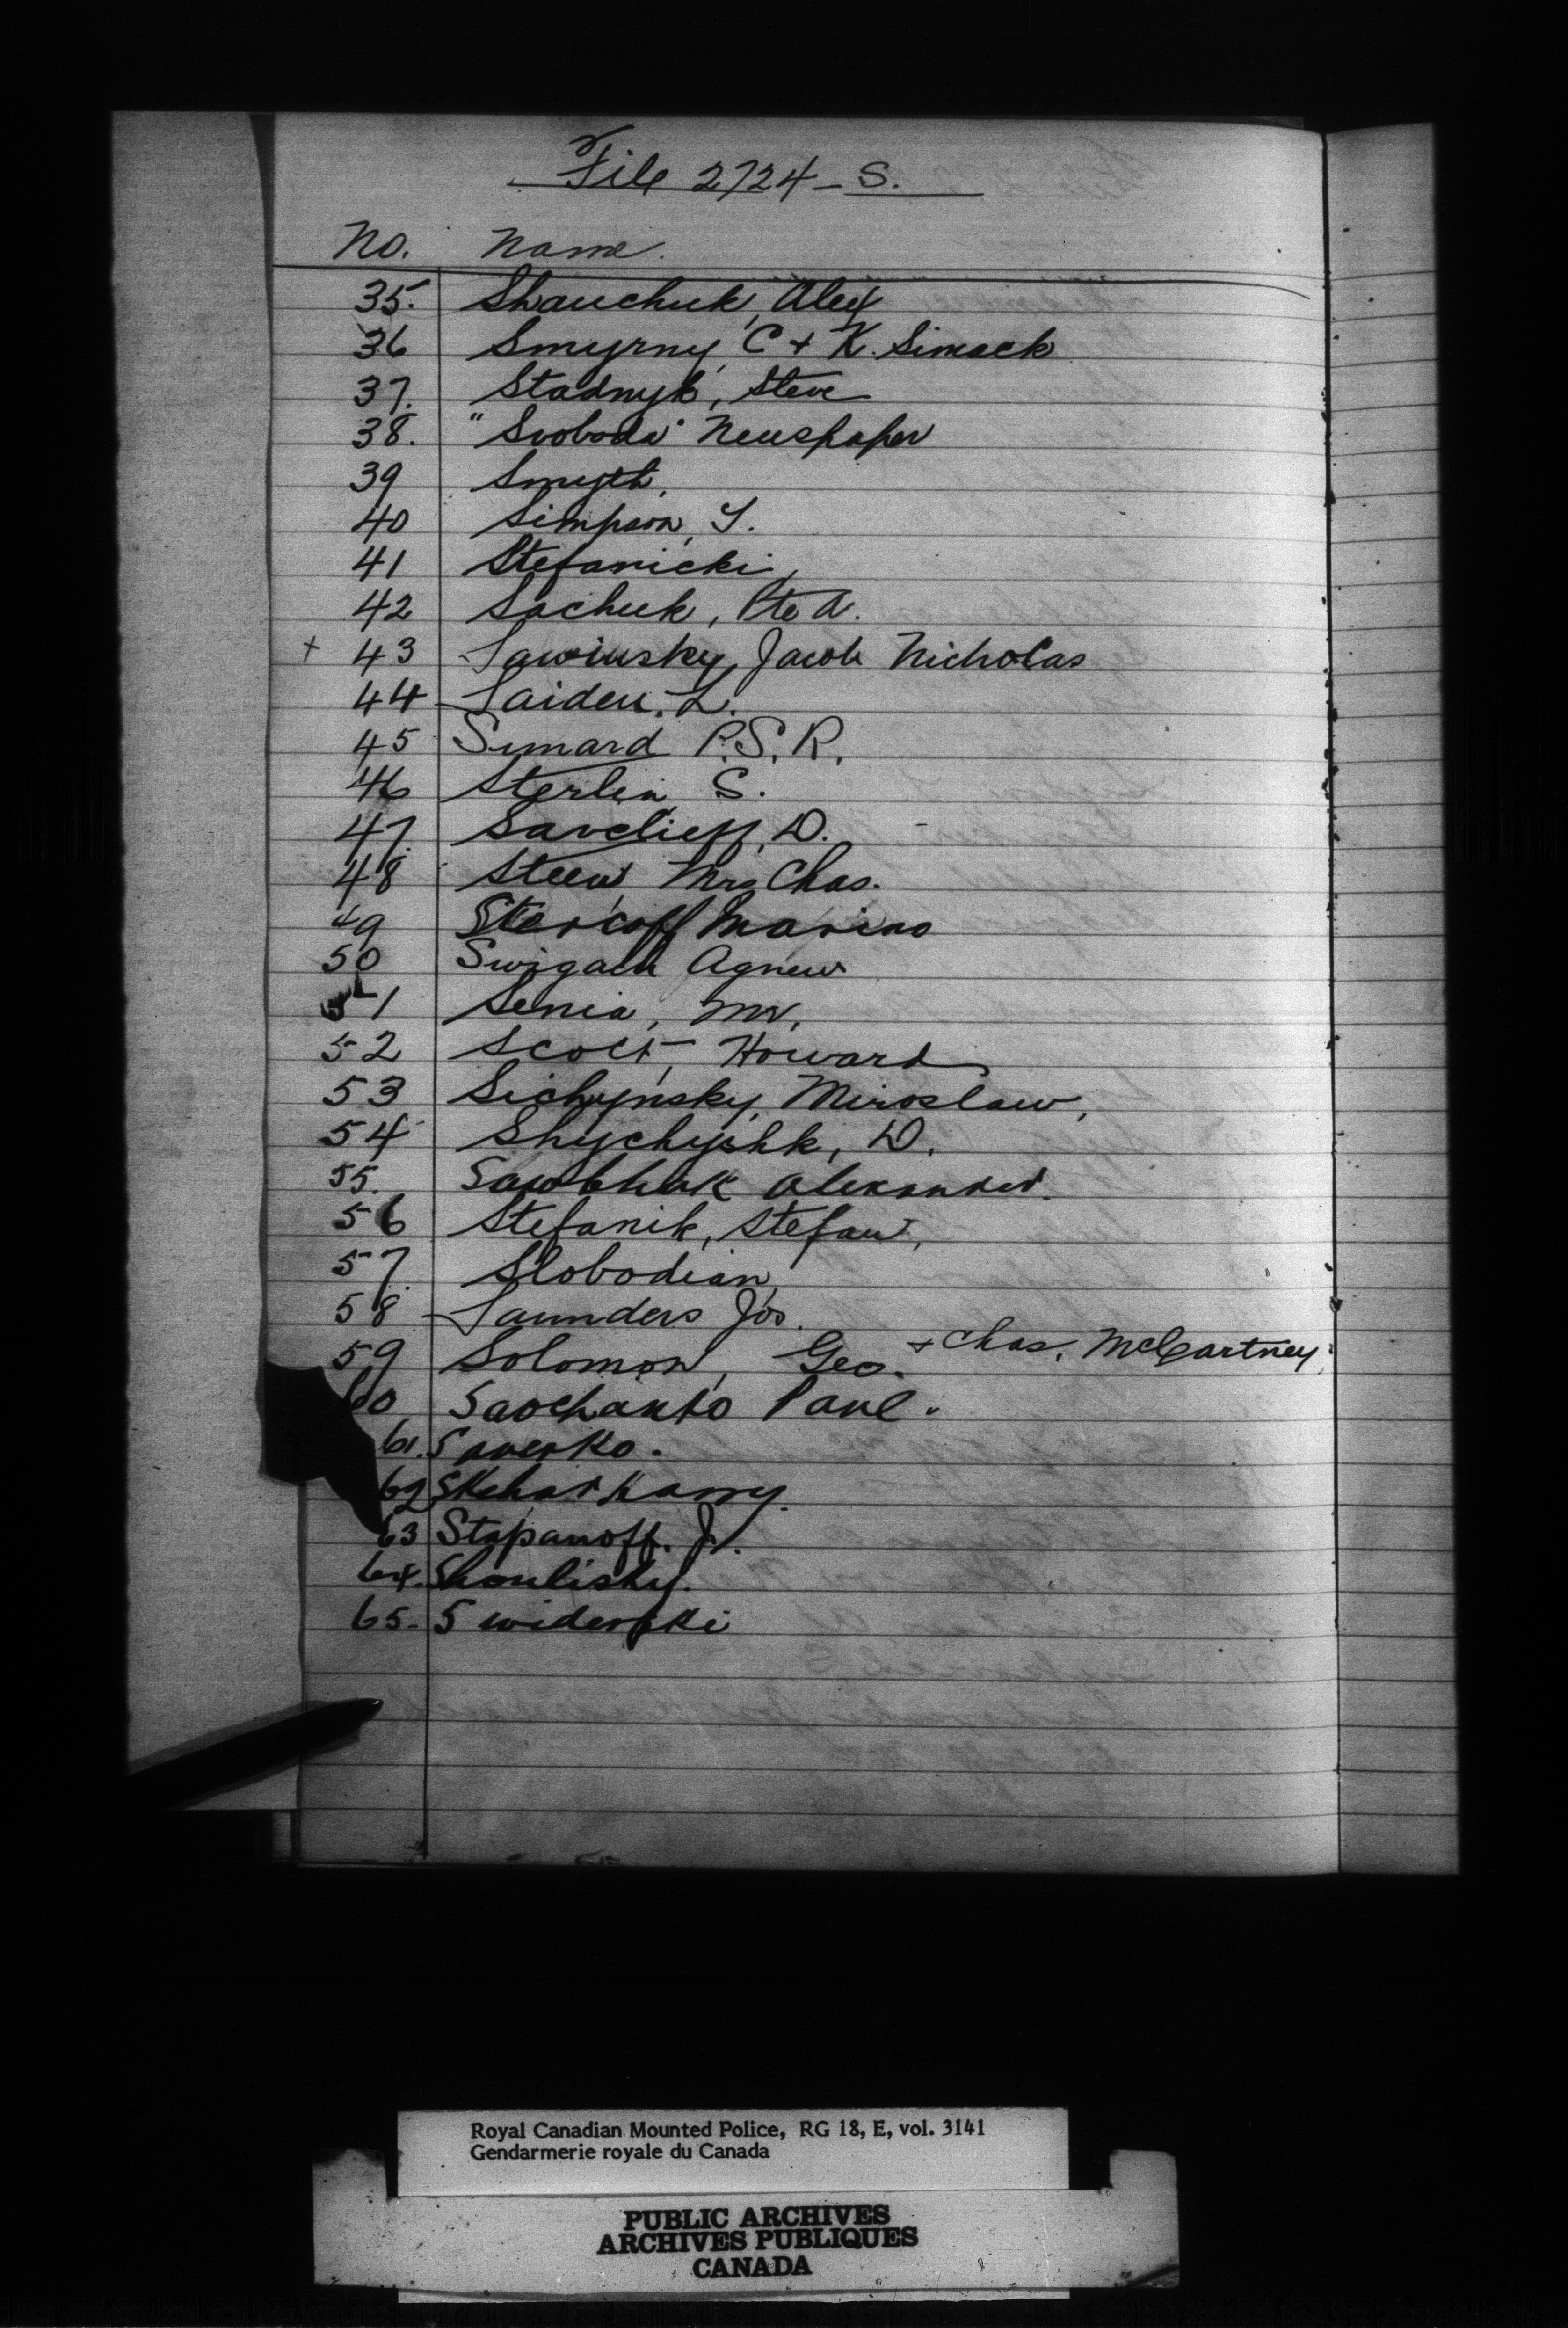 File 2724-S.
No. Name.
35. Shauchuk, Alex
36 Smyrny, C + K. Simack
37. Stadnyk, Steve
38. "Svoboda" Newspaper
39 Smyth,
40 Simpson,
41 Stefanicki,
42 Sachuk, Pte A.
+ 43 Sawinsky, Jacob Nicholas
44 Saiden. L.
45 Simard P.S.R.
46 Sterlin, S.
47. Savelieff, D.
48 Steen, Mrs Chas.
49 Stercoff Marino
50 Swigach Agnew
51 Senia, Mr,
52 Scott, Howard
53 Sichynsky, Miroslaw,
54 Shychyshk, D.
55. Alexander.
56 Stefanik, Stefan,
57. Slobodian,
58 Saunders Jos.
59 Solomon, Geo. + Chas. McCartney
60 Saochanko Paul.
61.
62 Harry.
63 Stapanoff. J.
64. Shoulisky.
65. Swiderski
Royal Canadian Mounted Police, RG 18, E, vol. 3141
Gendarmerie royale du Canada
PUBLIC ARCHIVES
ARCHIVES PUBLIQUES
CANADA